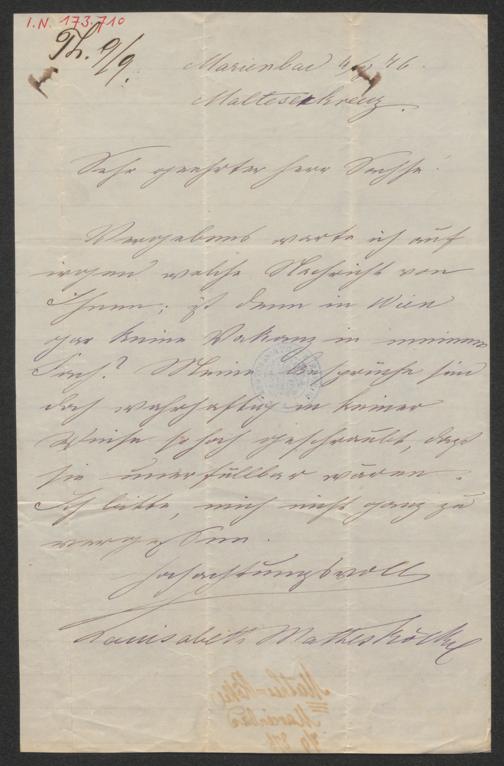 I.N. 173.710
Th. 9/9.
Marienbad 76.
Malteserkreuz.
Sehr geehrter Herr Sachse!
Vergebens warte ich auf
irgend welche Nachricht von
Ihnen; ist denn in Wien
gar keine Vakanz in meinem
Fach? Meine Ansprüche sind
doch wahrhaftig in keiner
Weise so hoch geschraubt, dass
sie unerfüllbar wären.
Ich bitte, mich nicht ganz zu
vergessen.
Hochachtungsvoll
Louisabeth Mathes